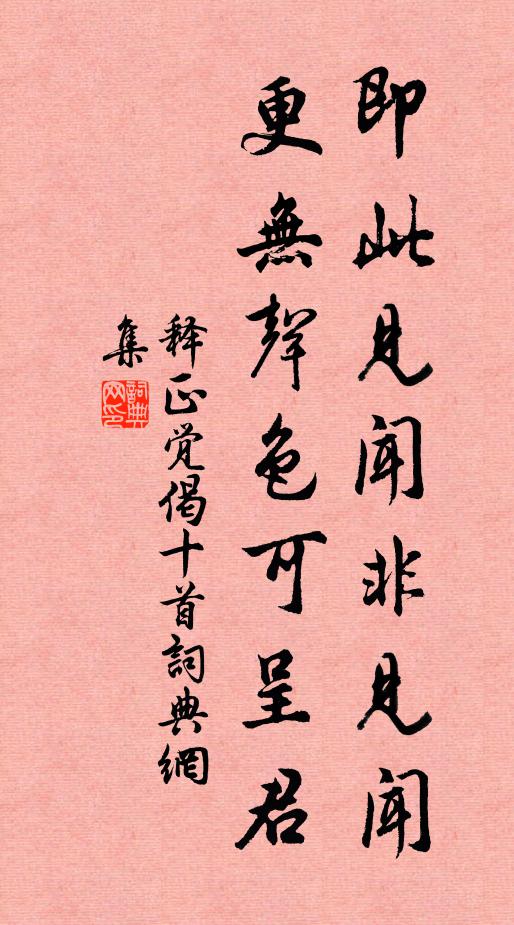 即此見聞非見聞
更無聲色可呈君
释正觉偈十首詞典網
集
詞典网印